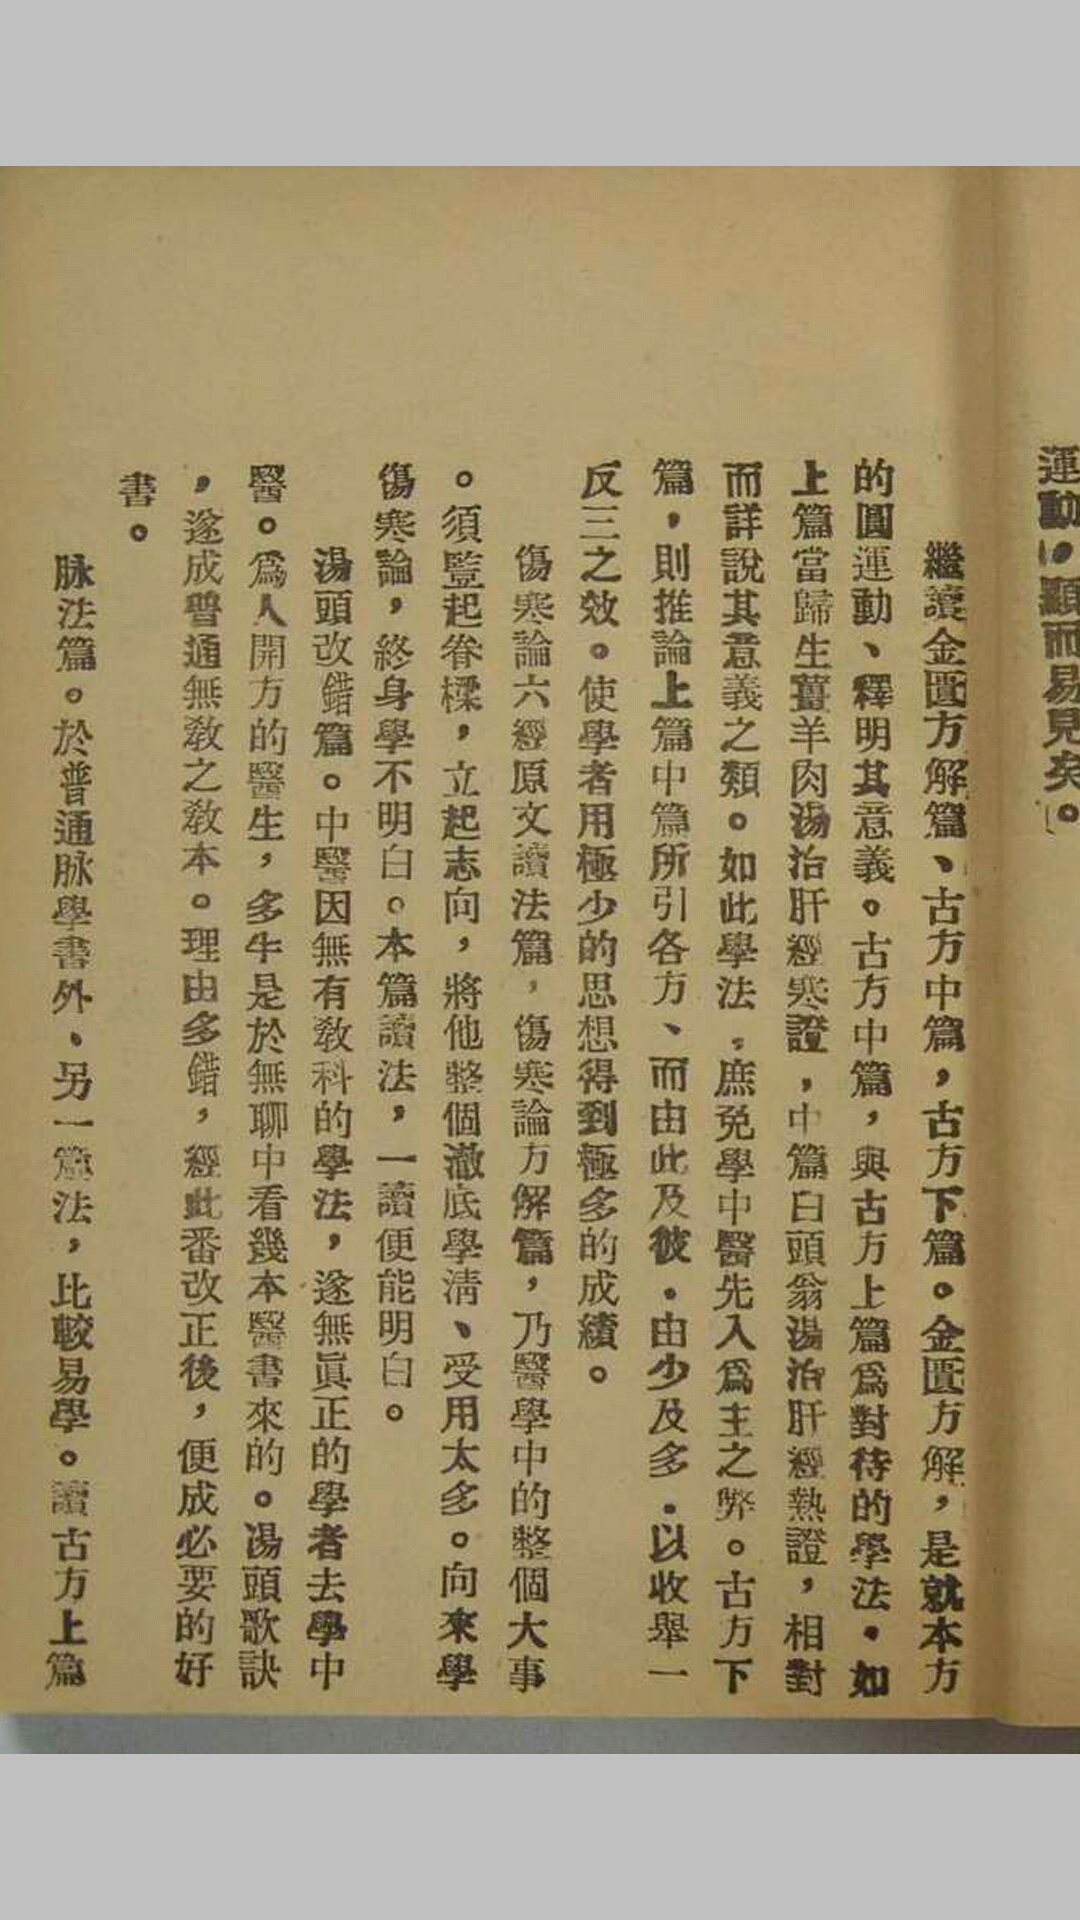 運動，顯而易見矣。
繼讀金匱方解篇、古方中篇，古方下篇。金匱方解，是就本方
的圓運動、釋明其意義。古方中篇，與古方上篇爲對待的學法．如
上篇當歸生薑羊肉湯治肝經寒證，中篇白頭翁湯治肝經熱證，相對
而詳說其意義之類。如此學法，庶免學中醫先入爲主之弊。古方下
篇，則推論上篇中篇所引各方、而由此及彼．由少及多．以收舉一
反三之效。使學者用極少的思想得到極多的成績。
傷寒論六經原文讀法篇，傷寒論方解篇，乃醫學中的整個大事
。須豎起脊樑，立起志向，將他整個澈底學淸、受用太多。向來學
傷寒論，終身學不明白。本篇讀法，一讀便能明白。
湯頭改錯篇。中醫因無有敎科的學法，遂無眞正的學者去學中
醫。爲人開方的醫生，多牛是於無聊中看幾本醫書來的。湯頭歌訣
，遂成普通無敎之敎本。理由多錯，經此番改正後，便成必要的好
書。
脉法篇。於普通脉學書外、另一篇法，比較易學。讀古方上篇